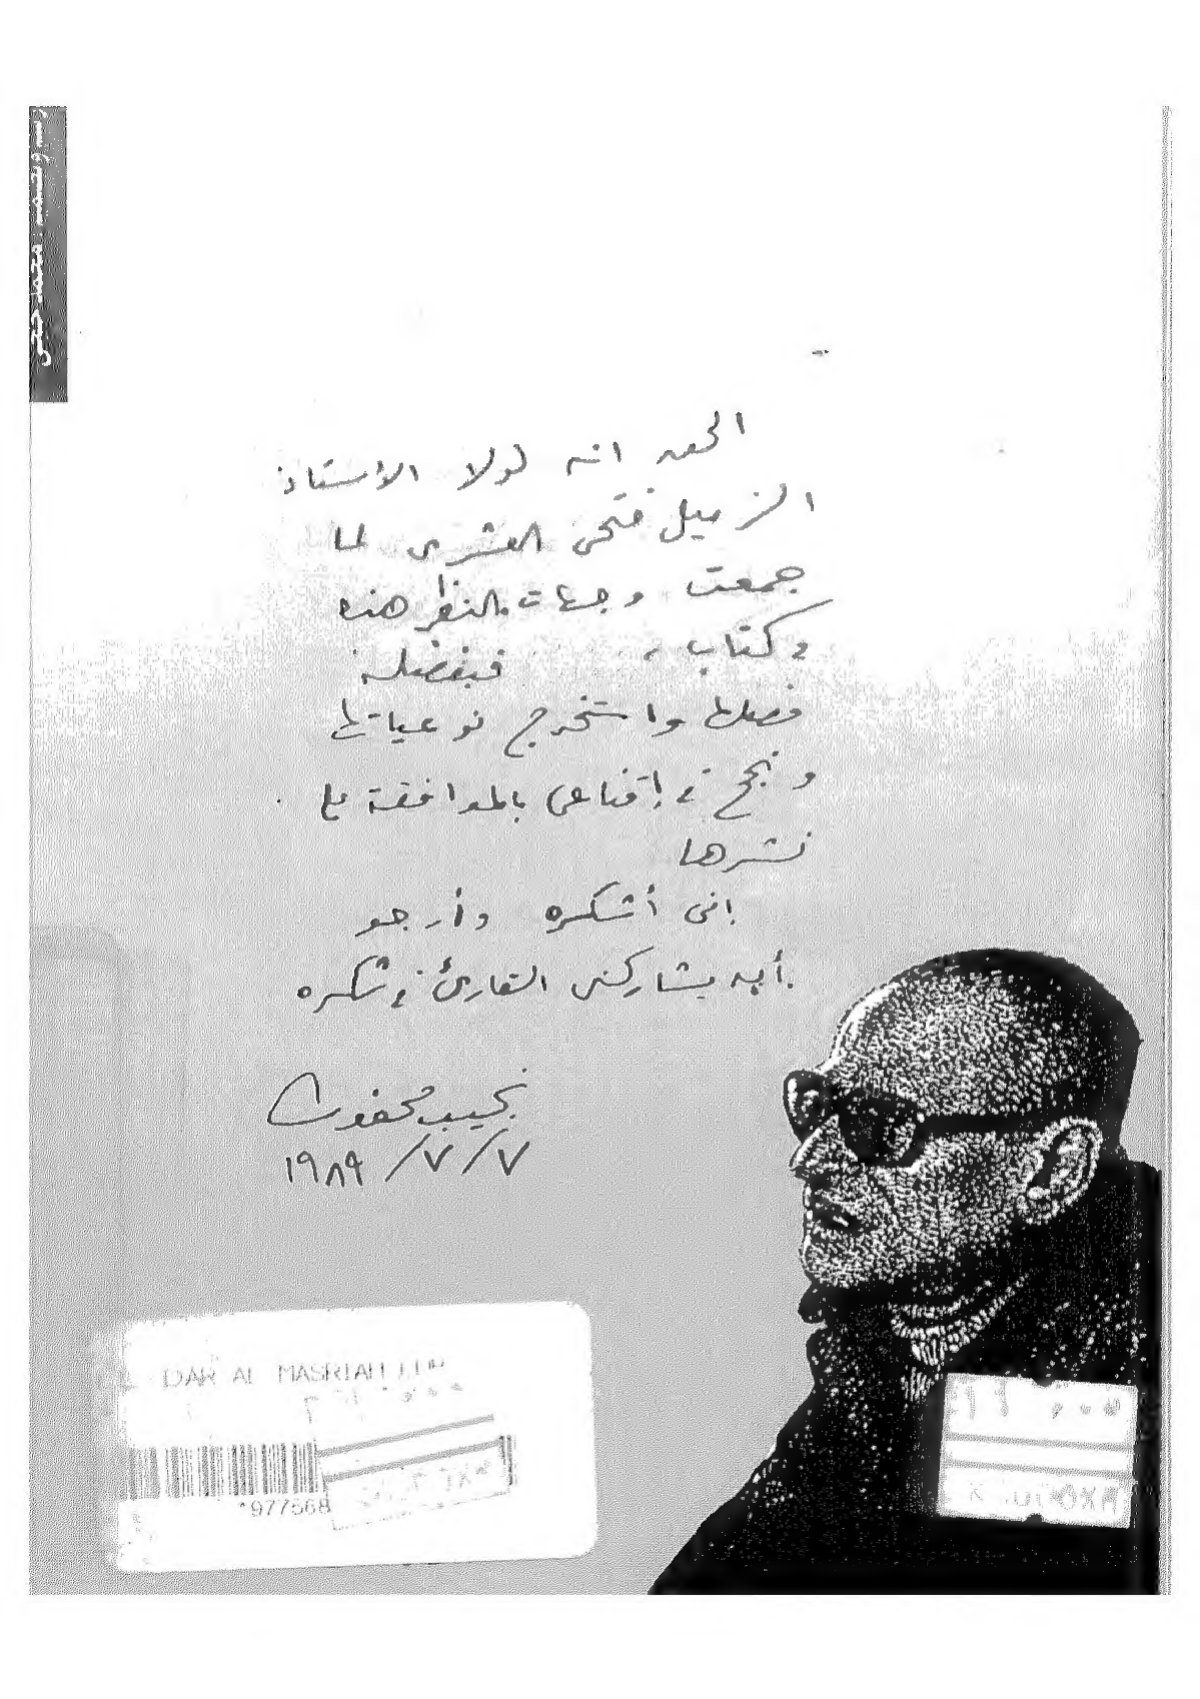 الحق انه لولا الأستاذ
الزميل فتحى العشرى لما
جمعت وجهات النظر هذه
فى كتاب، فبفضله
فصلها واستخرج نوعياتها
ونجح فى إقناعى بالموافقة على
نشرها
إنى أشكره وأرجو
أن يشاركنى القارئ فى شكره
نجيب محفوظ
٧/٧/١٩٨٩
محمد حجى
DAR AL MASRIAH
*977568